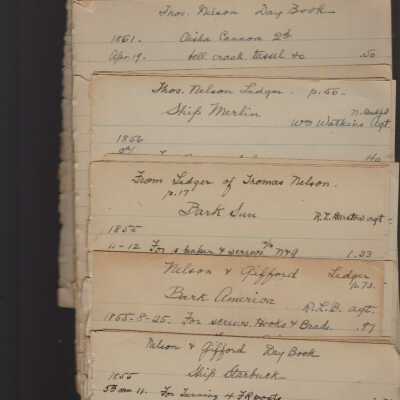 Thos. Nelson Day Book
1861. Aisha Cannon 2d
Apr. 19. bell crank tassel &c .50
Thos. Nelson Ledger. p.50-
Ship Merlin
N. Bedfd
Wm Watkins Agt.
1856
From Ledger of Thomas Nelson.
p.17
Bark Sun
agt-
1855
11-12 For s baker & screws 1.33
Nelson & Gifford Ledger
p.73.
Bark America
R.L.B. agt.
1855-8-25. For screws, Hooks & Brads. .87
Nelson & Gifford Day Book
Ship Starbuck
1855
5 mo 11. For Turning 4